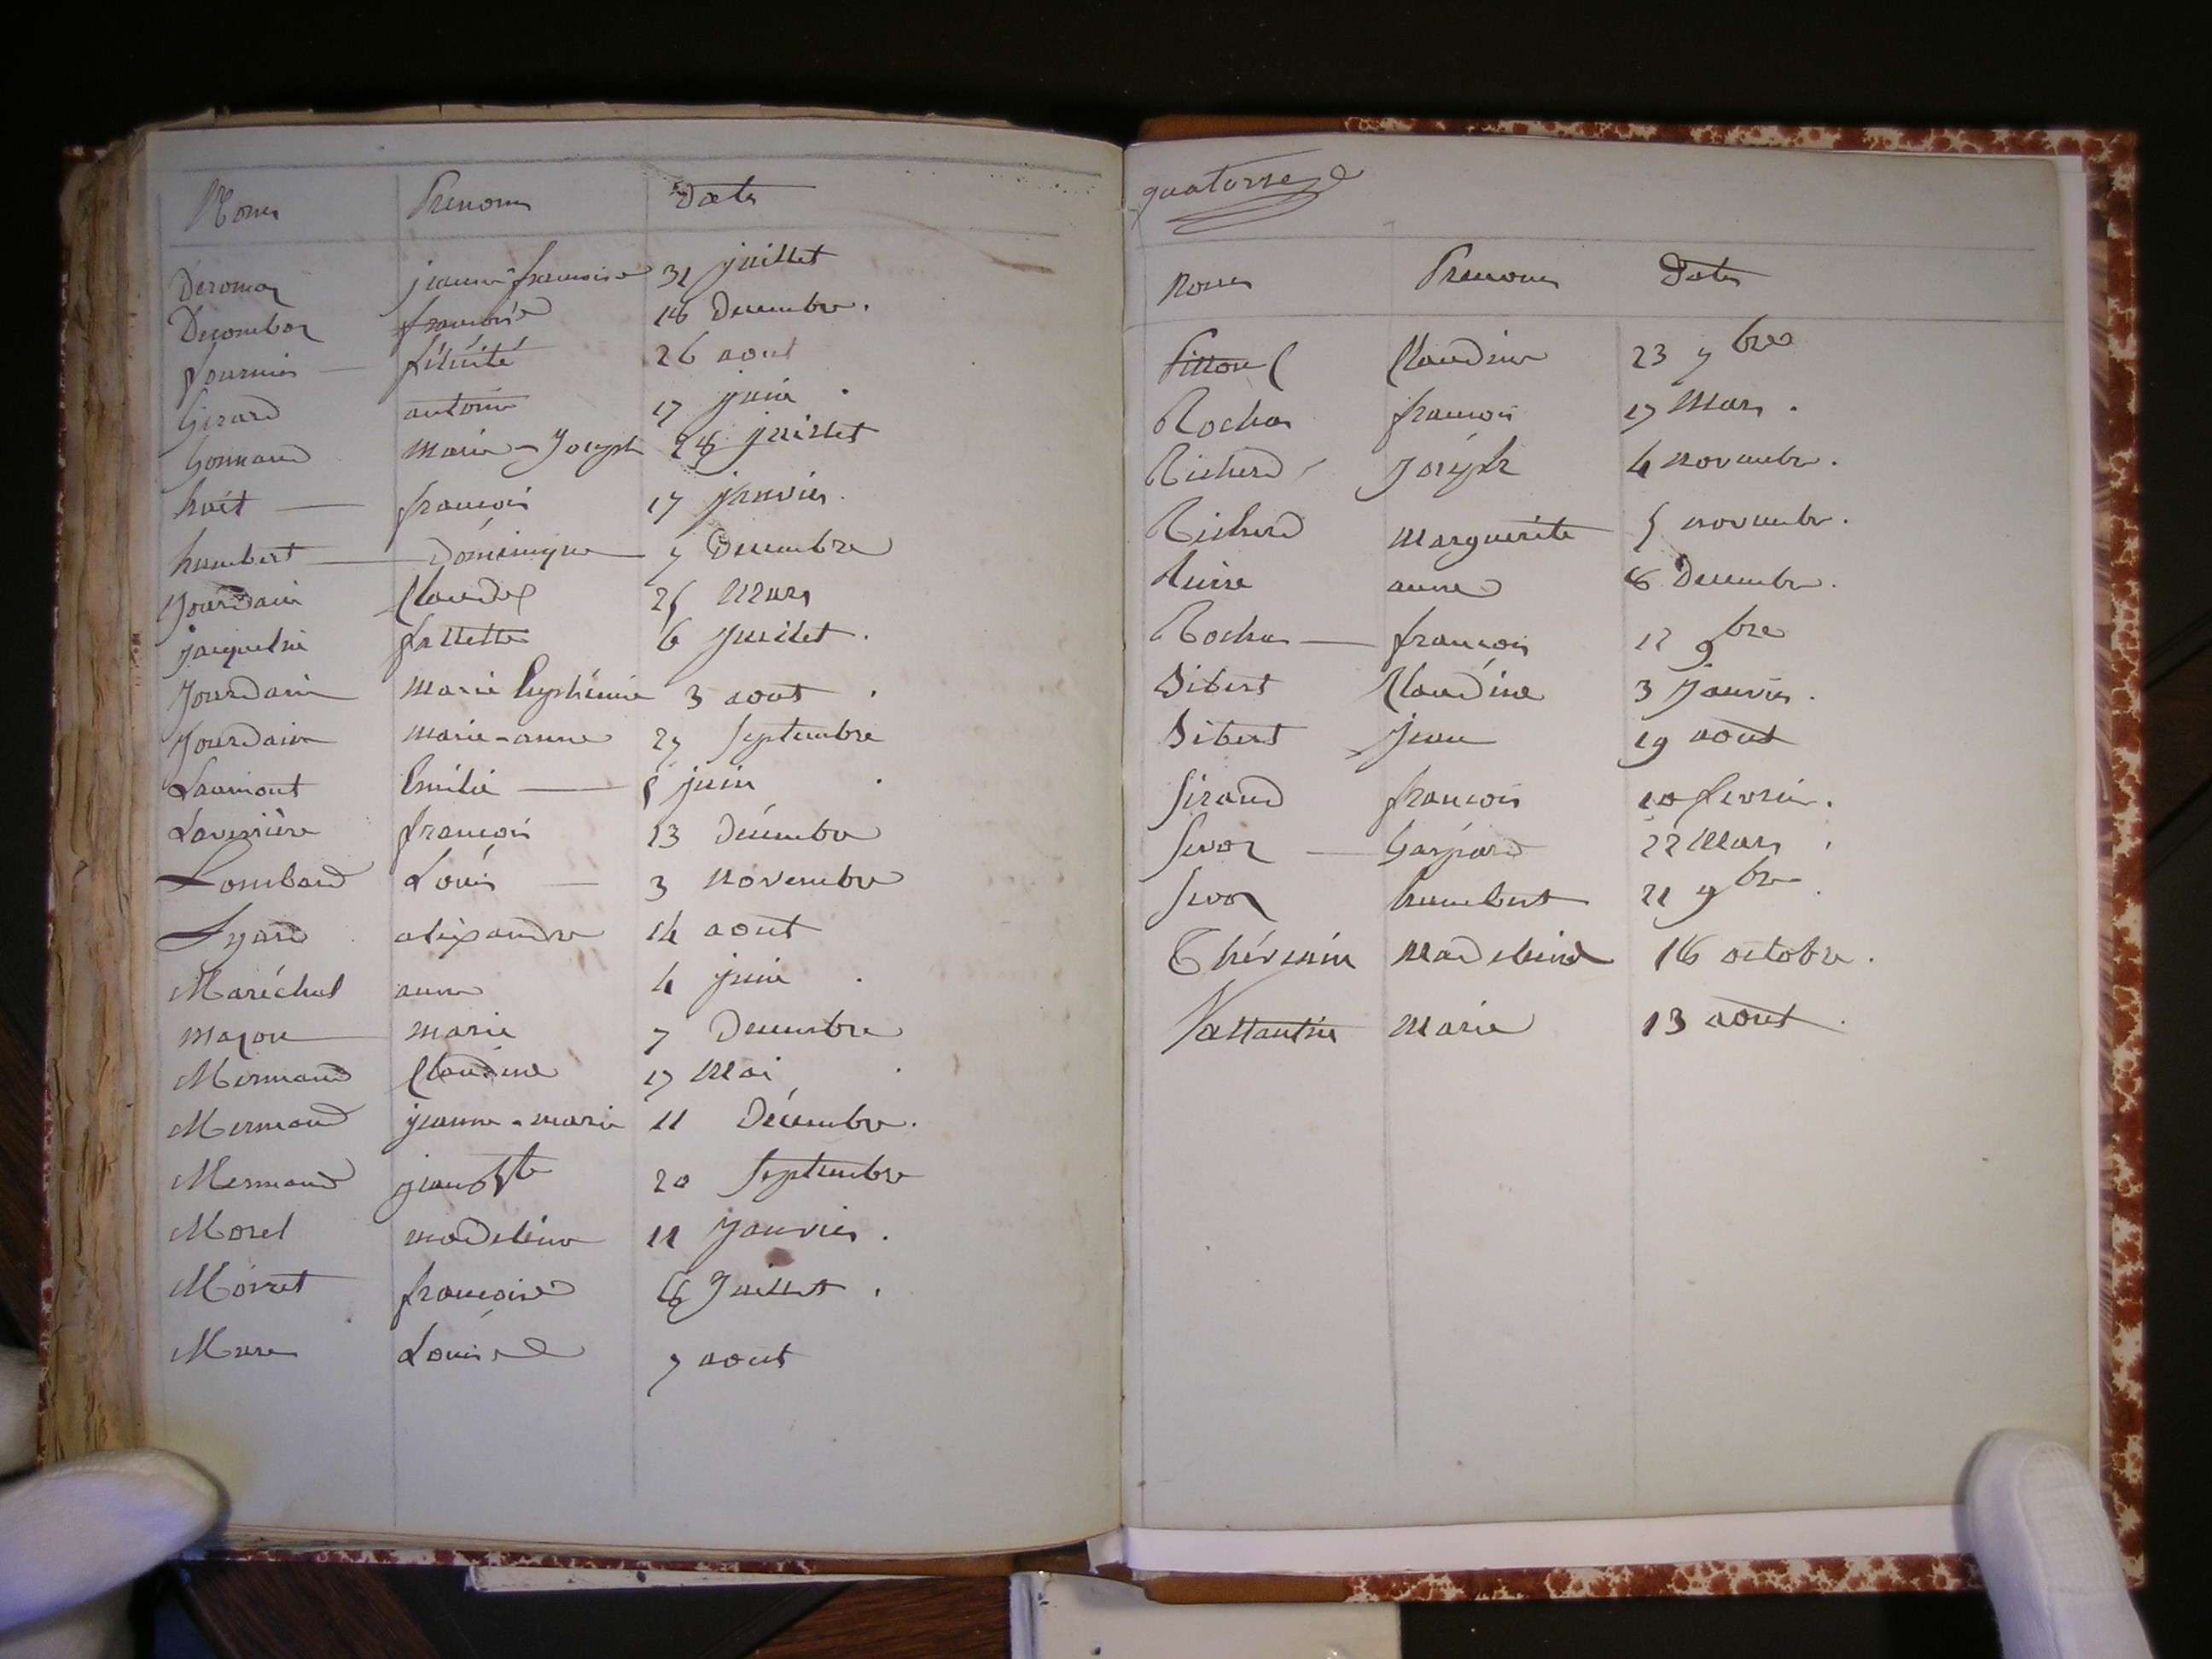 Noms Prenoms Dates
Deromaz jeanne-francoise 31 juillet
Decombaz francoise 18 Decembre.
fournier félicité 26 aout
Girard antoine 17 juin
Gonnand Marie-Joseph 28 juillet
huit francois 17 janvier.
humbert Dominique 7 Decembre
Jourdain Claude 25 Mars
jacquelin 6 Juillet.
Jourdain Marie Euphémie 3 aout
Jourdain Marie-anne 27 Septembre
Laumont Emilie 5 juin
Laverrière francois 13 Décembre
Lombard Louis 3 Novembre
Lyard alexandre 14 aout
Maréchal anne 4 juin
maçon marie 7 Decembre
Mermand Claudine 17 Mai
Mermand jeanne-marie 11 Décembre.
Mermand jean Bte 20 Septembre
Morel madeleine 11 Janvier.
francoise 6 Juillet.
Louise 7 aout
quatorze
Noms Prenoms Dates
Pitton Claudine 23 7bre
Rochas francois 17 Mars.
Richerd Joseph 4 novembre.
Richerd Marguerite 5 novembre.
anne 8 Decembre.
Rochas francois 12 9bre
Sibert Claudine 3 Janvier.
Sibert Jean 19 aout
Siraud francois 10 fevrier.
Sevoz Gaspard 22 Mars
Sevoz humbert 21 9bre
Thévenin Madeleine 16 octobre.
Vallantin Marie 13 aout.